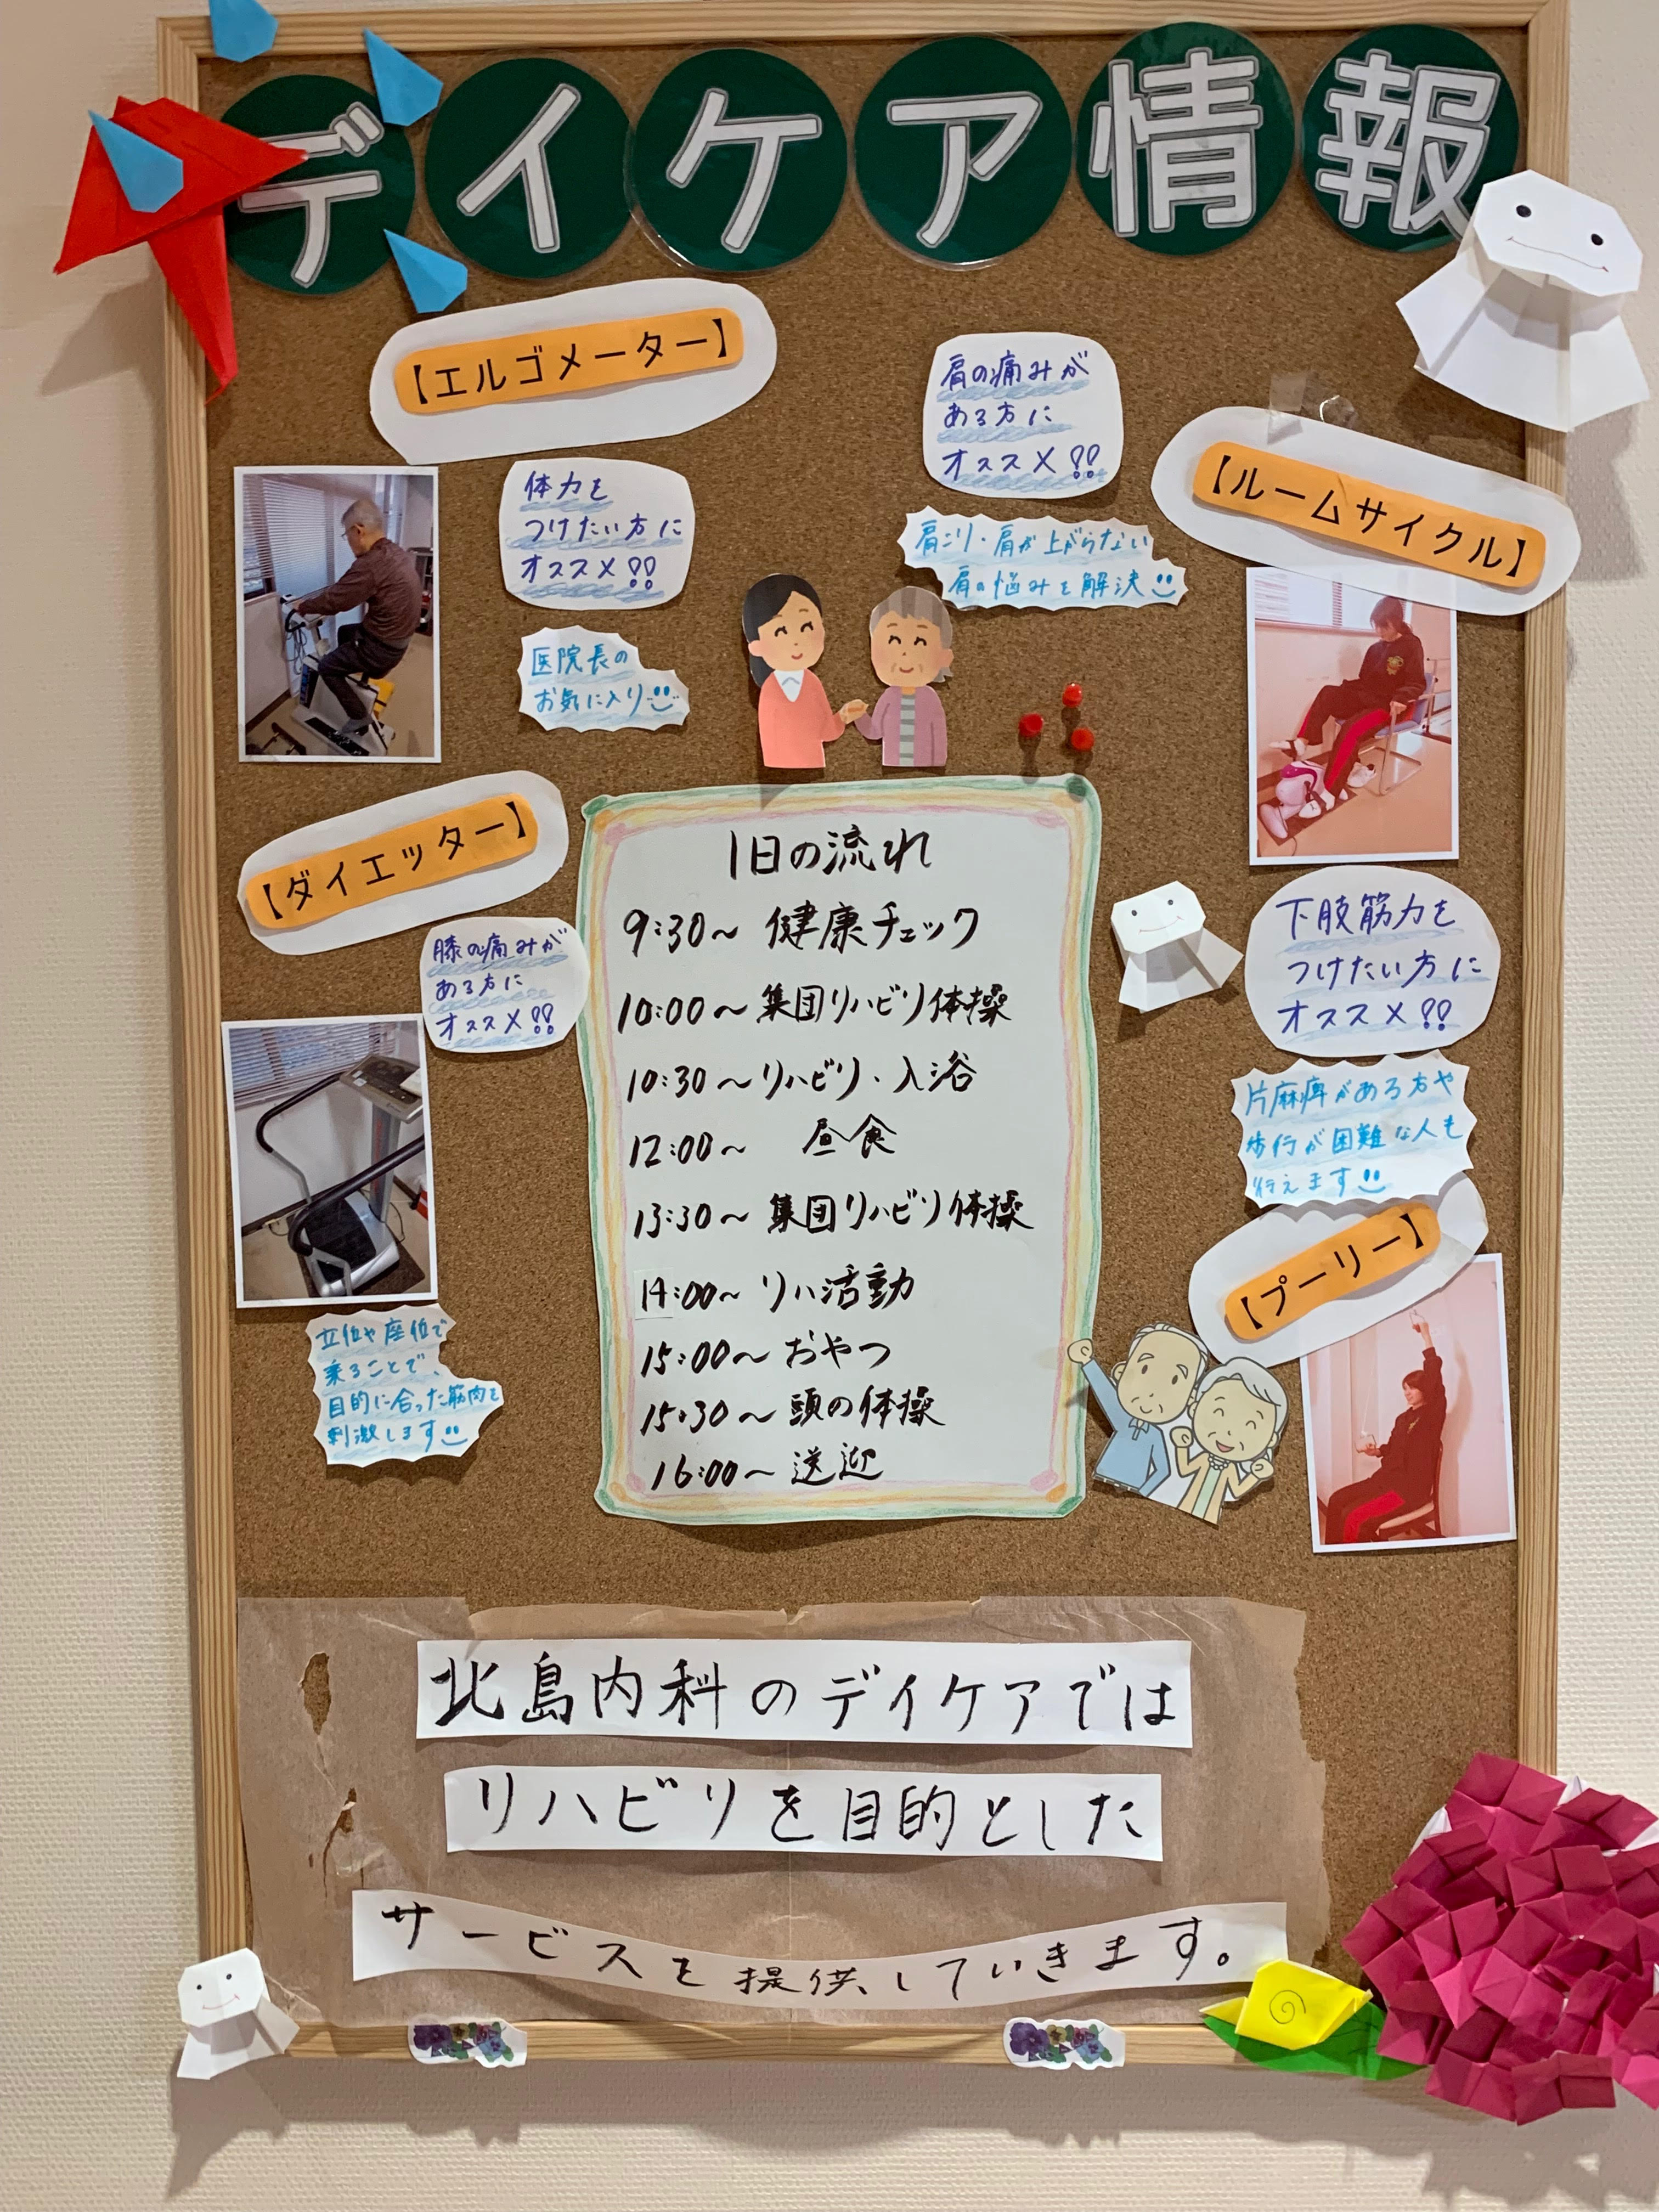 デイケア情報
【エルゴメーター】
体力を
つけたい方に
オススメ!!
医院長の
お気に入り
肩の痛みが
ある方に
オススメ!!
肩こり・肩が上がらない
肩の悩みを解決
【ルームサイクル】
【ダイエッター】
膝の痛みが
ある方に
オススメ!!
立位や座位で
乗ることで、
目的に合った筋肉を
刺激します
1日の流れ
9:30〜 健康チェック
10:00〜集団リハビリ体操
10:30〜リハビリ・入浴
12:00〜 昼食
13:30〜 集団リハビリ体操
14:00〜 リハ活動
15:00〜 おやつ
15:30〜 頭の体操
16:00〜 送迎
下肢筋力を
つけたい方に
オススメ!!
片麻痺がある方や
歩行が困難な人も
行えます
【プーリー】
北島内科のデイケアでは
リハビリを目的とした
サービスを提供していきます。